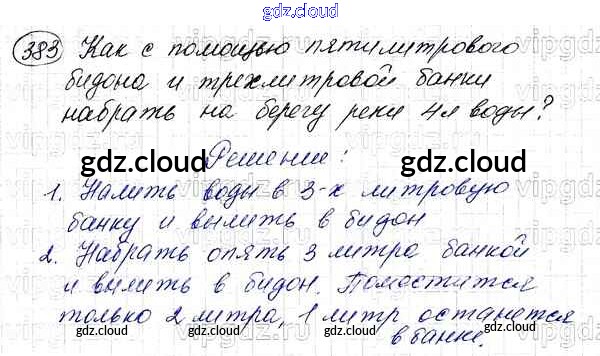 gdz.cloud
383 Как с помощью пятилитрового
бидона и трехлитровой банки
набрать на берегу реки 4л воды?
gdz.cloud Решение: gdz.cloud
1. Налить воды в 3-х литровую
банку и вылить в бидон
2. Набрать опять 3 литра банкой
и вылить в бидон. Поместится
только 2 литра, 1 литр останется
gdz.cloud gdz.cloud в банке.